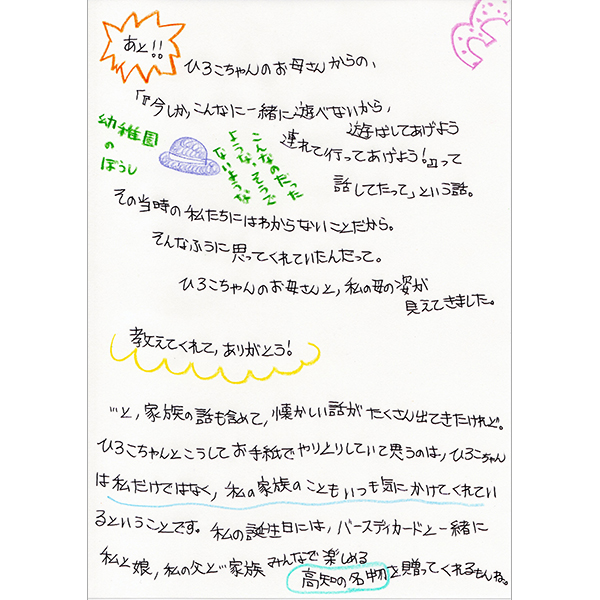 あと!!
ひろこちゃんのお母さんからの、
「『今しか、こんなに一緒に遊べないから、
遊ばしてあげよう
連れて行ってあげよう!』って
話してたって」という話。
幼稚園
の
ぼうし
こんなのだった
ような、そうで
ないような
その当時の私たちにはわからないことだから。
そんなふうに思ってくれていたんだって。
ひろこちゃんのお母さんと、私の母の姿が
見えてきました。
教えてくれて、ありがとう!
…と、家族の話も含めて、懐かしい話がたくさん出てきたけれど。
ひろこちゃんとこうしてお手紙でやりとりしていて思うのは、ひろこちゃん
は私だけではなく、私の家族のこともいつも気にかけてくれてい
るということです。私の誕生日には、バースディカードと一緒に
私と娘、私の父と家族みんなで楽しめる
高知の名物を贈ってくれるもんね。